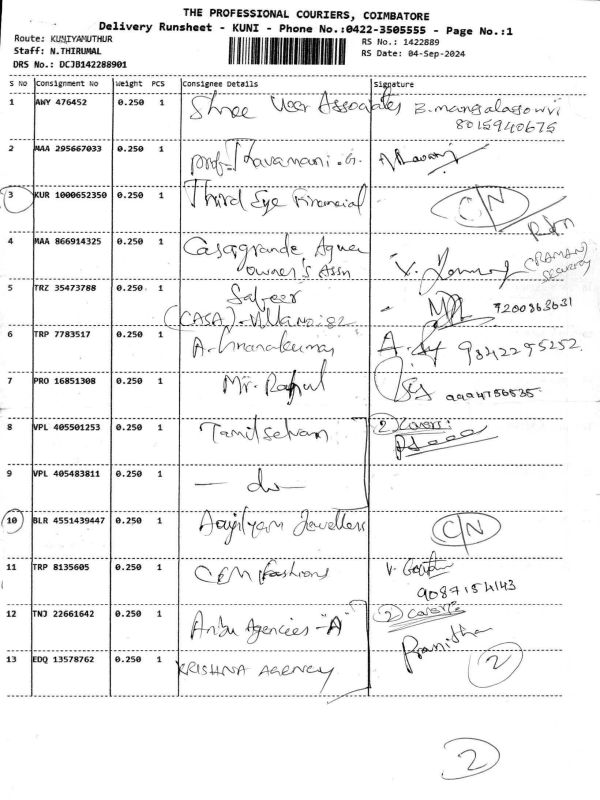 THE PROFESSIONAL COURIERS, COIMBATORE
Delivery Runsheet - KUNI - Phone No.:0422-3505555 - Page No.:1
Route: KUNIYAMUTHUR
RS No.: 1422889
Staff: N.THIRUMAL
RS Date: 04-Sep-2024
DRS No.: DCJB142288901
S No Consignment No Weight PCS Consignee Details Signature
1 AWY 476452 0.250 1 Shree Veer Associates B.mangalagowri
8015940675
2 MAA 295667033 0.250 1 Prof. Thavamani .G.
3 KUR 1000652350 0.250 1 Third Eye Financial C/N
4 MAA 866914325 0.250 1 Casagrande Aqua
owner's Assn
(RAMAN)
Security
5 TRZ 35473788 0.250 1 Safeer
(CASA). Villa no: 82
9200863631
6 TRP 7783517 0.250 1 A. 9842295252
7 PRO 16851308 0.250 1 Mr. Rahul 9994756535
8 VPL 405501253 0.250 1 Tamilselvam 2 covers
9 VPL 405483811 0.250 1 — do —
10 BLR 4551439447 0.250 1 Jewellers C/N
11 TRP 8135605 0.250 1 CEM fashions
9087154143
12 TNJ 22661642 0.250 1 Anbu Agencies - "A" 2 covers
Pranitha
13 EDQ 13578762 0.250 1 KRISHNA AGENCY 2
2